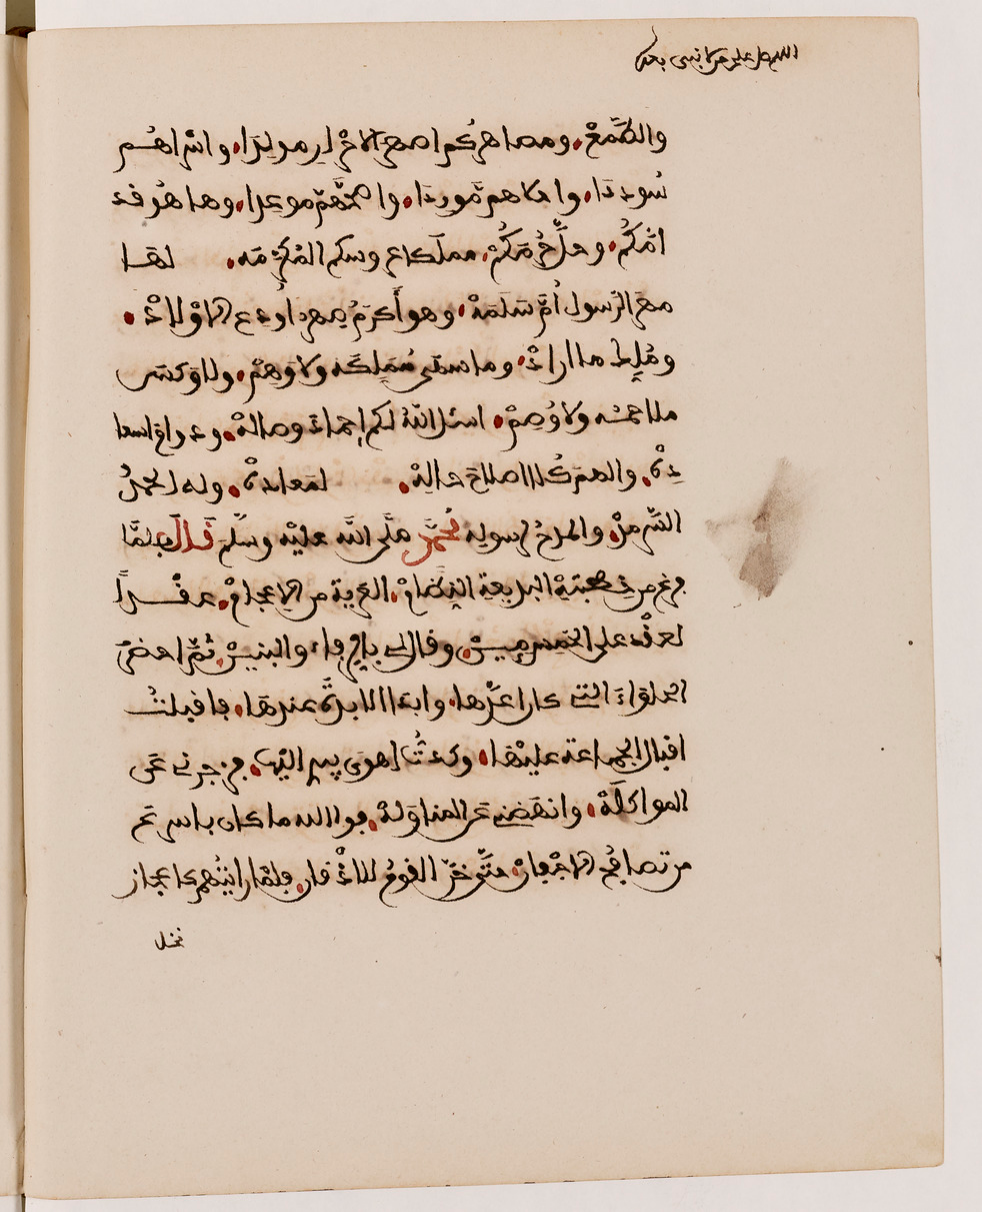 اللهم صل على من لا نبي بعده
والطمع، ومصاهركم اطهر الاحرار مولدا، واسراهم
سوددا، واحلاهم موردا، واصحهم موعدا، وها هو قد
امكم، وحل حرمكم، مملكا عروسكم المكرمه، لها
مهر الرسول ام سلمة، وهو أكرم صهر اودع الاولاد،
وملك ما اراد، وما سها مملكه ولا وهم، ولا وكس
ملاحمه ولا وصم، اسئل الله لكم احماد وصاله، ودوام اسعا
ده، والهم كلا اصلاح حاله، لمعاده، وله الحمد
السرمد، والمدح لرسوله محمد صلى الله عليه وسلم قال فلما
فرغ من خطبته البديعة النظام، العرية من الاعجام، عقد
العقد على الخمس ميين، وقال لي بالرفاء والبنين، ثم احضر
الحلواء التي كان اعدها، وابدا الابدة عندها، فاقبلت
اقبال الجماعة عليها، وكدت اهوي بيدي اليها، فزجرني عن
المواكلة، وانهضني عن المناولة، فوالله ما كان باسرع
من تصافح الاجفان، حتى خر القوم للاذقان، فلما رايتهم كاعجاز
نخل